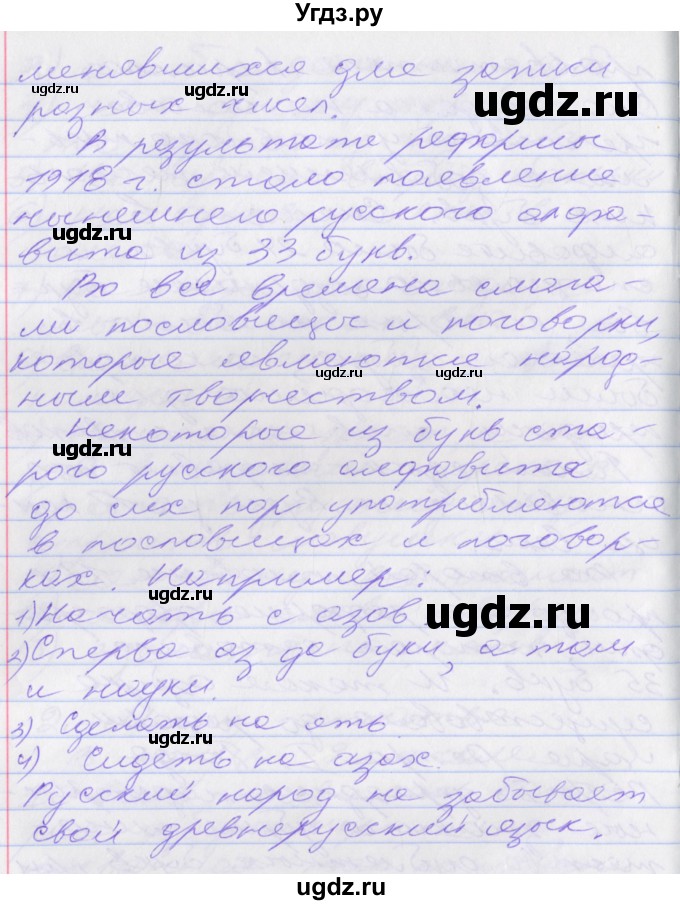 Угдз.ру
менявшихся для записи
разных чисел.
В результате реформы
1918 г. стало появление
нынешнего русского алфа-
вита из 33 букв.
Во все времена слага-
ли пословицы и поговорки,
которые являются народ-
ным творчеством.
Некоторые из букв ста-
рого русского алфавита
до сих пор употребляются
в пословицах и поговор-
ках. Например:
1) Начать с азов.
2) Сперва аз да буки, а там
и науки.
3) Сделать на ять.
4) Сидеть на азах.
Русский народ не забывает
свой древнерусский язык.
ugdz.ru
ugdz.ru
ugdz.ru
ugdz.ru
ugdz.ru
ugdz.ru
ugdz.ru
ugdz.ru
ugdz.ru
ugdz.ru
ugdz.ru
ugdz.ru
ugdz.ru
ugdz.ru